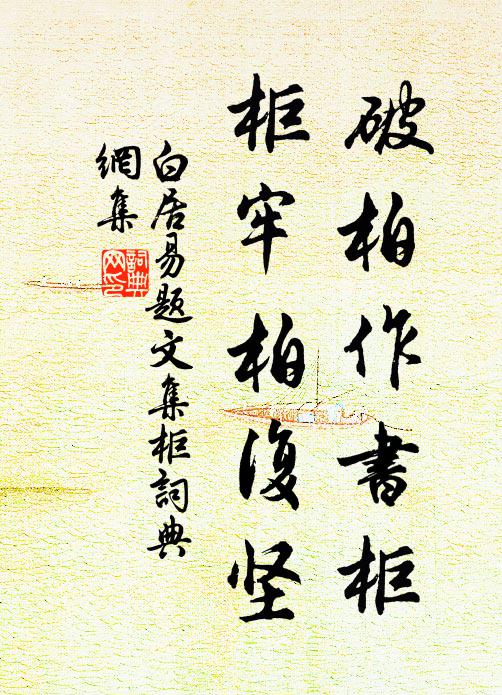 破柏作書柜
柜牢柏復坚
白居易题文集柜詞典
網集
詞典
网印